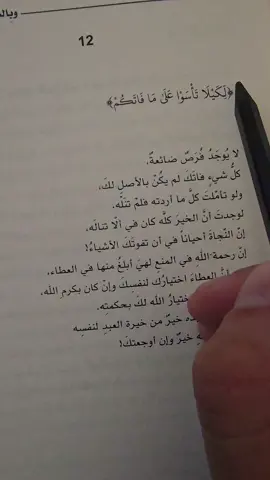 وبالو
12
﴿لِكَيْلَا تَأْسَوْا عَلَىٰ مَا فَاتَكُمْ﴾
لا يُوجَدُ فُرَصٌ ضائعةٌ.
كلُّ شيءٍ فاتَكَ لم يكُنْ بالأصلِ لكَ،
ولو تأمّلتَ كلَّ ما أردته فلمْ تنَلْه.
لوجدتَ أنَّ الخيرَ كلَّه كان في ألّا تنالَه.
إنّ النّجاةَ أحياناً في أن تفوتَكَ الأشياءُ!
إنّ رحمةَ اللهِ في المنعِ لهيَ أبلغُ منها في العطاء،
أنَّ العطاءَ اختيارُك لنفسِكَ وإنْ كان بكرمِ الله،
ختيارُ الله لكَ بحكمتِه.
خيرٌ من خيرة العبدِ لنفسِه
خيرٌ وإن أوجعتكَ!